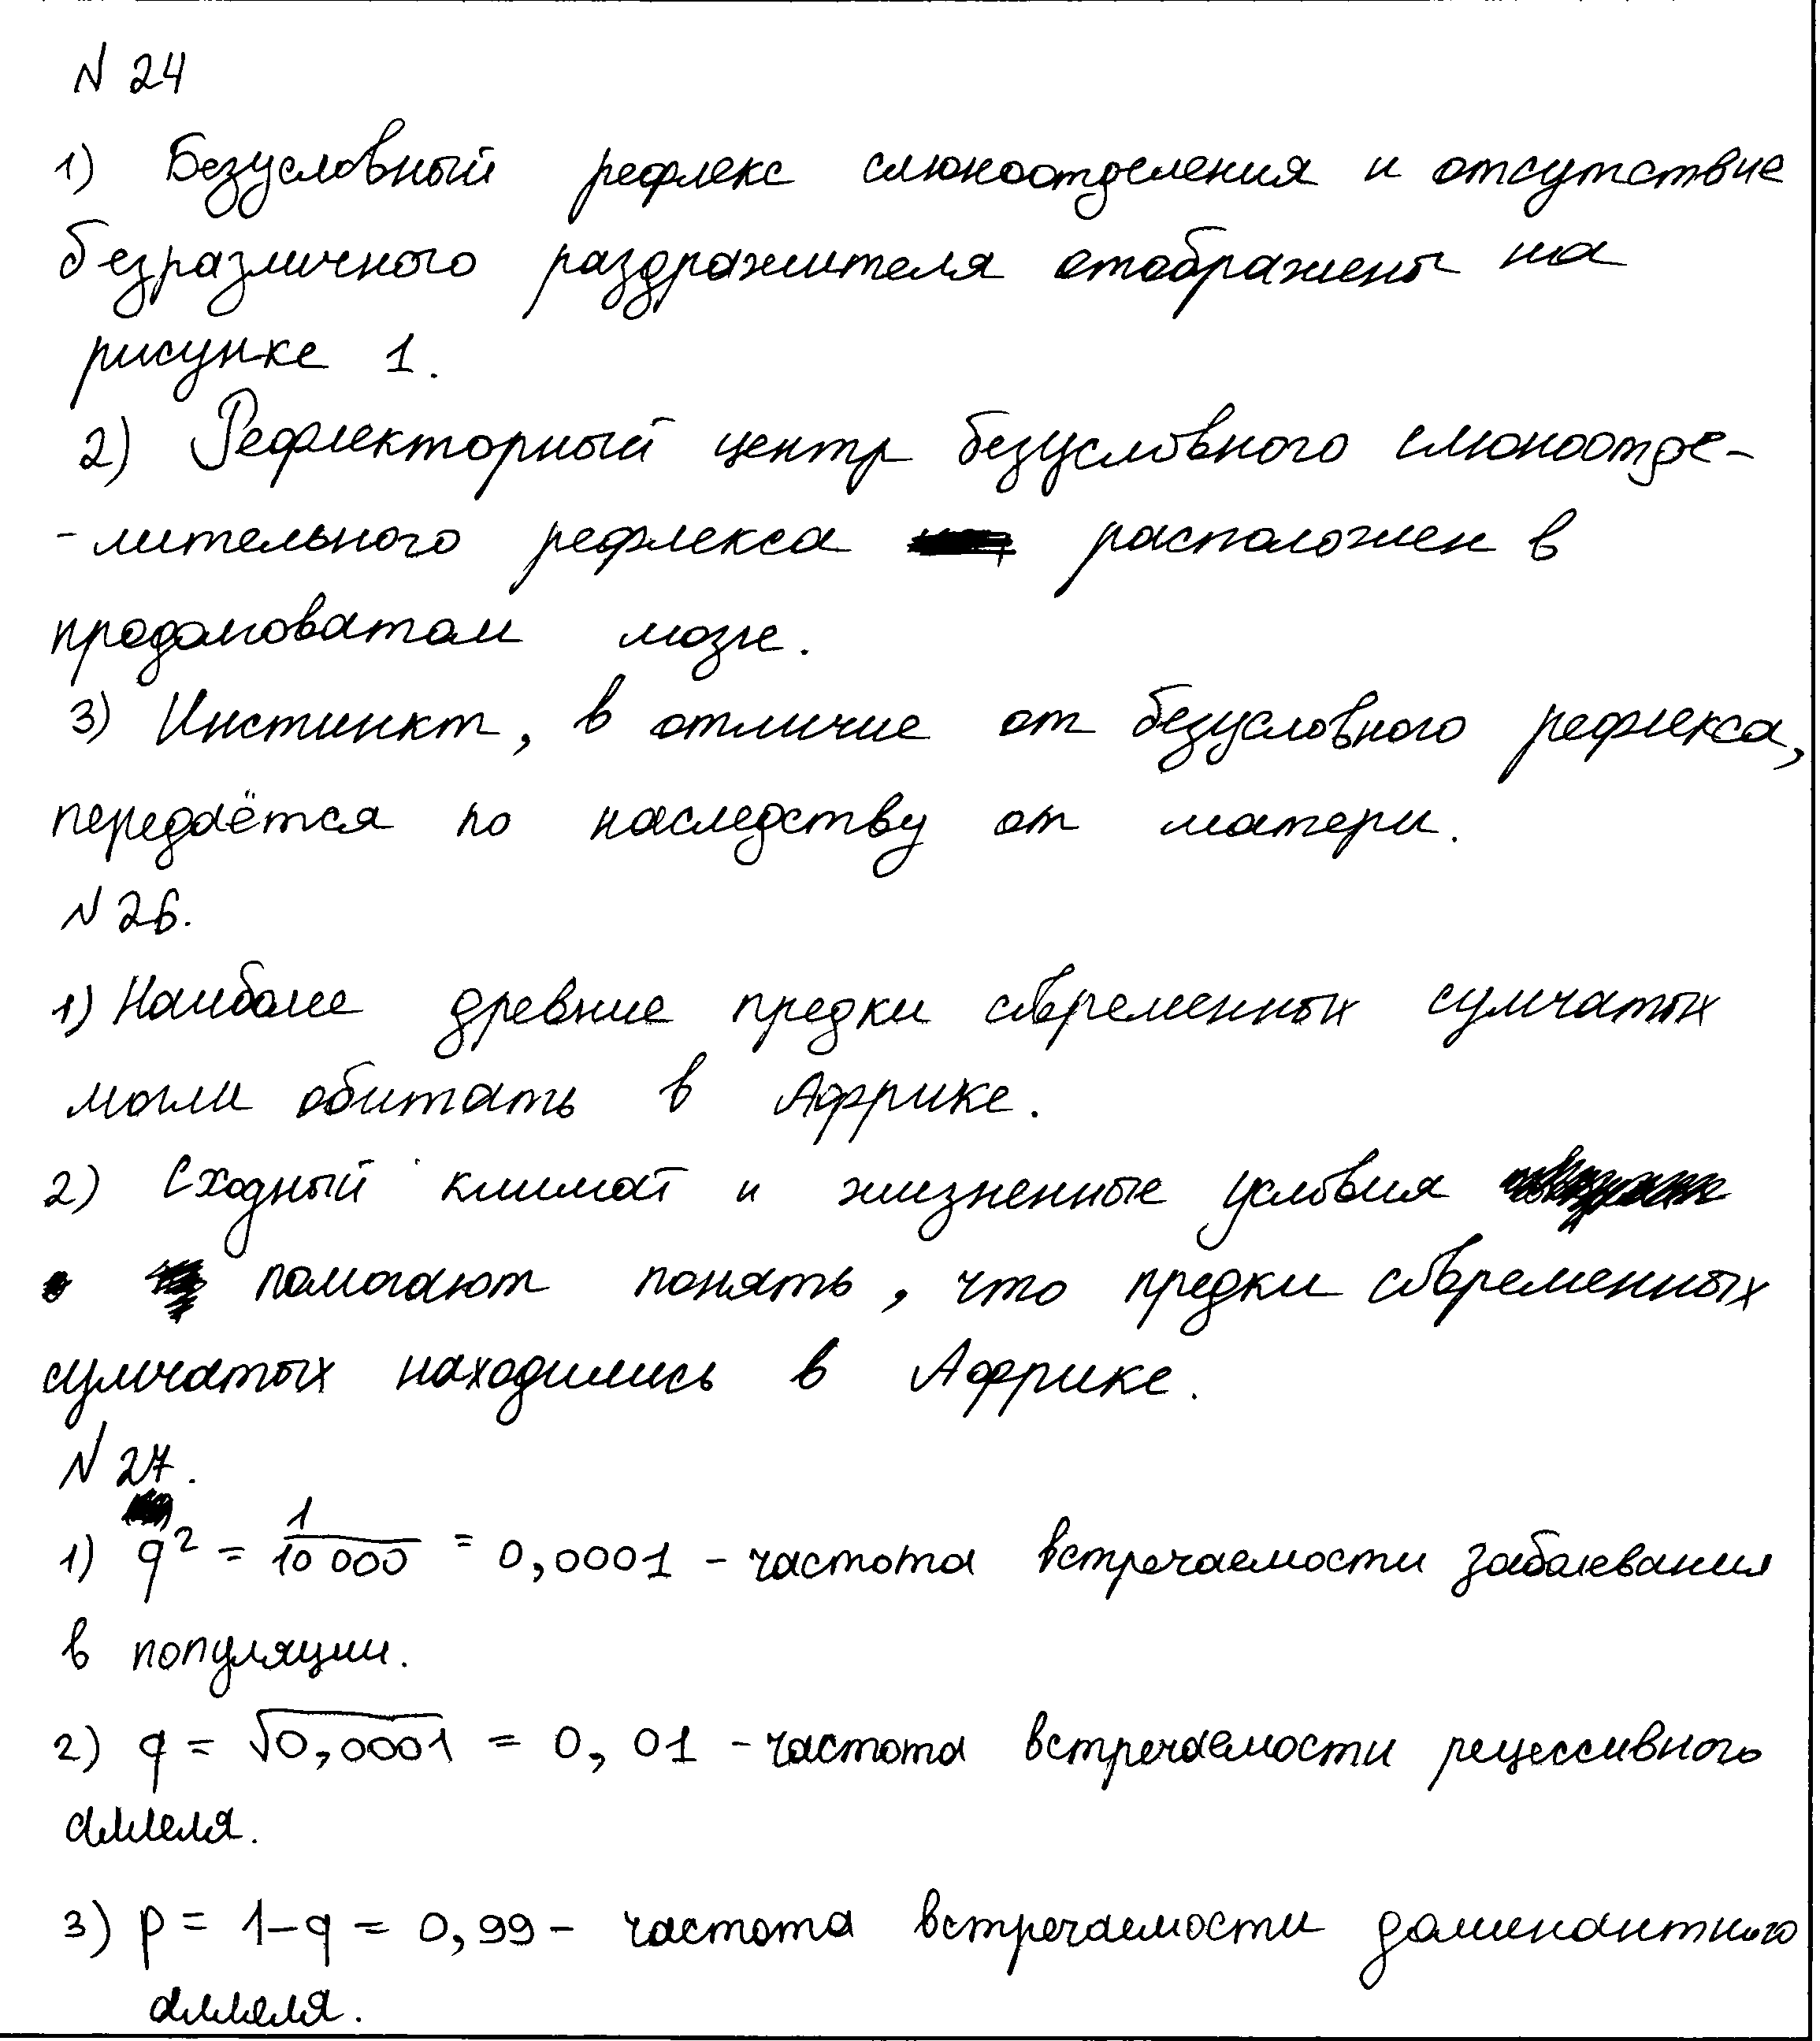 N 24
1) Безусловный рефлекс слюноотделения и отсутствие
безразличного раздражителя отображены на
рисунке 1.
2) Рефлекторный центр безусловного слюноотде-
-лительного рефлекса расположен в
продолговатом мозге.
3) Инстинкт, в отличие от безусловного рефлекса,
передаётся по наследству от матери.
N 26.
1) Наиболее древние предки современных сумчатых
могли обитать в Африке.
2) Сходный климат и жизненные условия
помогают понять, что предки современных
сумчатых находились в Африке.
N 27.
1) q² = 1/10 000 = 0,0001 - частота встречаемости заболевания
в популяции.
2) q = √0,0001 = 0,01 - частота встречаемости рецессивного
аллеля.
3) p = 1-q = 0,99 - частота встречаемости доминантного
аллеля.